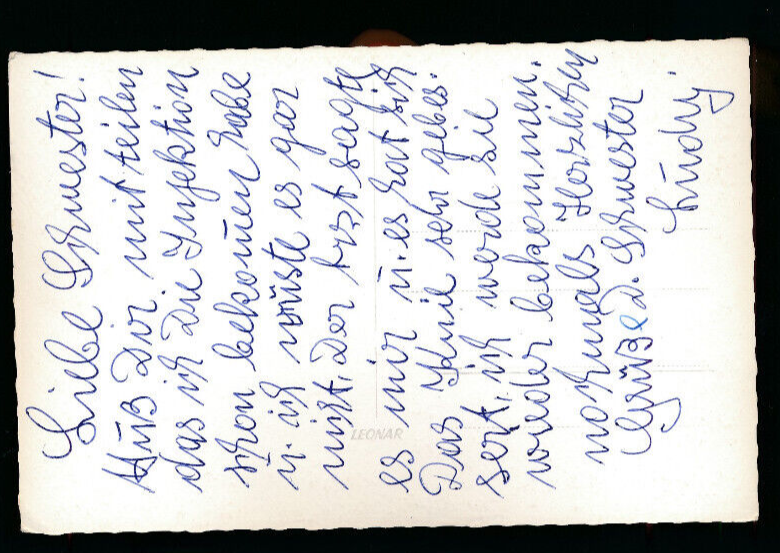 Liebe Schwester!
Muß Dir mitteilen
das ich Die Injektion
schon bekomen habe
u. ich wüste es gar
nicht. Der Arzt sagte
es mir u. es hat sich
Das Knie sehr gebes-
sert, ich werde sie
wieder bekommen.
nochmals Herzlichen
Gruß d. Schwester
LEONAR